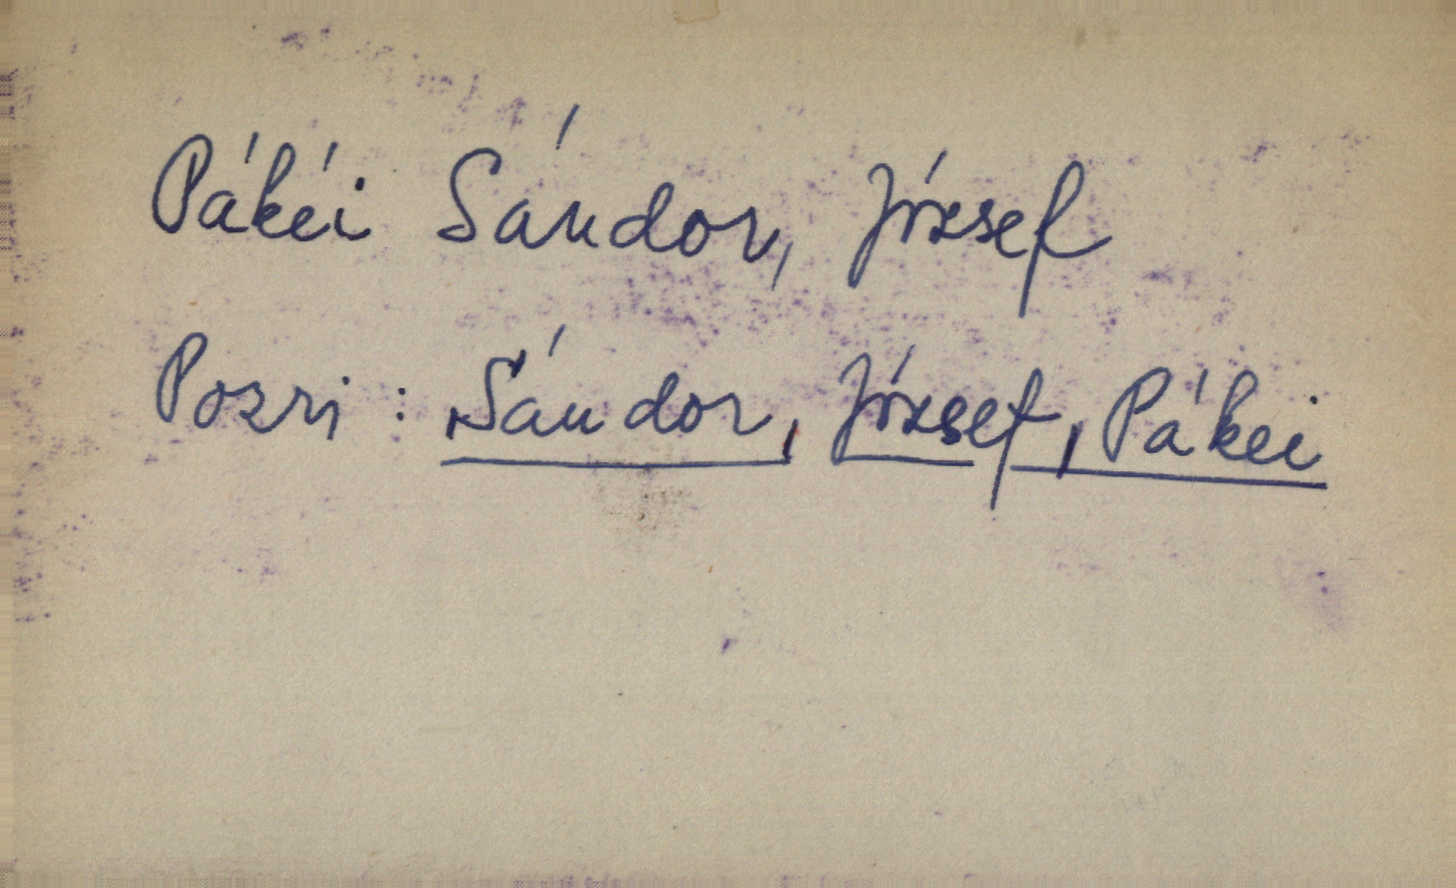 Pákéi Sándor, József
Pozri: Sándor, József, Pákei